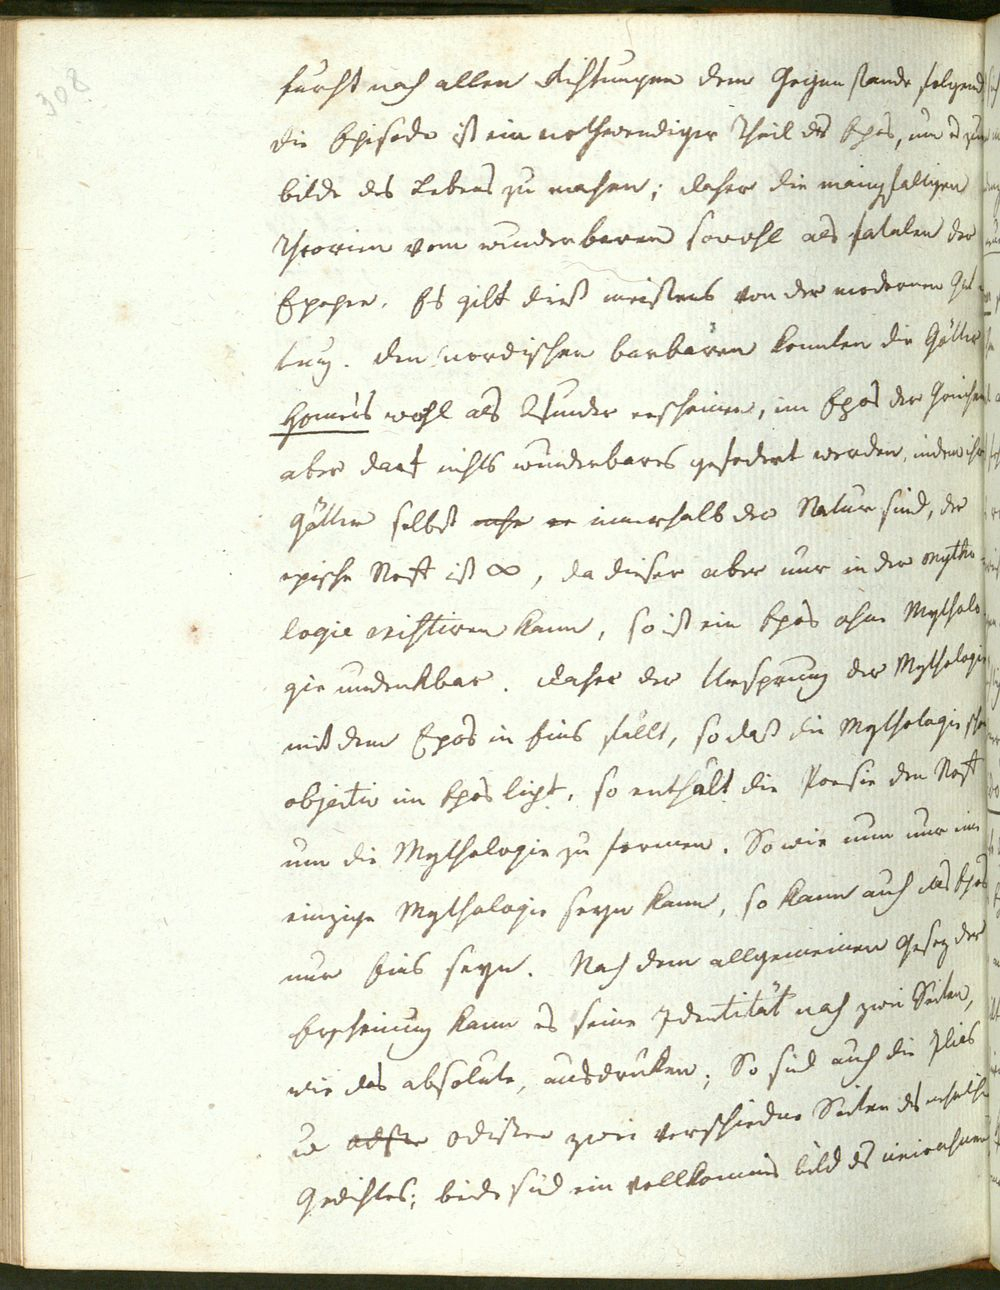 308
furcht nach allen Richtungen dem Gegenstande folgend
die Episode ist ein nothwendiger Theil des Epos, um es zum
bilde des Lebens zu machen; daher die mannigfaltigen
Theorien vom wunderbaren sowohl als fatalen der
Epopee. Es gilt dieß meistens von der modernen Gat
tung. Den nordischen barbaren konnten die Götter
Homers wohl als Wunder erscheinen, im Epos der Griechen
aber darf nichts wunderbares gefodert werden, indem ihre
Götter selbst innerhalb der Natur sind, der
epische Stoff ist ∞, da dieser aber nur in der Mytho
logie existiren kann, so ist ein Epos ohne Mytholo
gie undenkbar. Daher der Ursprung der Mythologie
mit dem Epos in Eins fällt, so daß die Mythologie schon
objectiv im Epos liegt, so enthält die Poesie den Stoff
um die Mythologie zu formen. So wie nun nur eine
einzige Mythologie seyn kann, so kann auch das Epos
nur Eins seyn. Nach dem allgemeinen Gesez der
Erscheinung kann es seine Identität nach zwei Seiten,
wie das absolute, ausdruken; So sind auch die Ilias
u Odissee zwei verschiedne Seiten des
Gedichtes; beide sind ein vollkomnes bild des